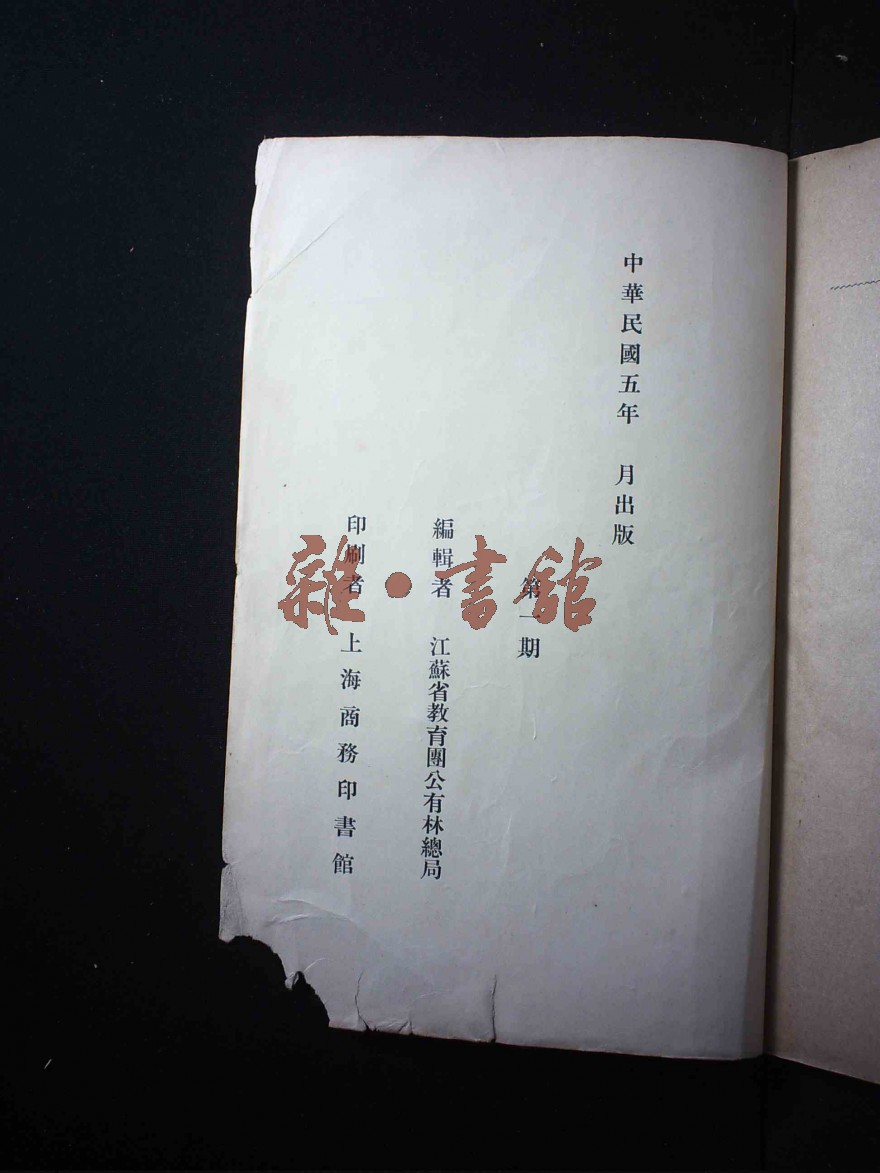 中華民國五年　月出版
第一期
編輯者　江蘇省教育團公有林總局
印刷者　上海商務印書館
雜·書館